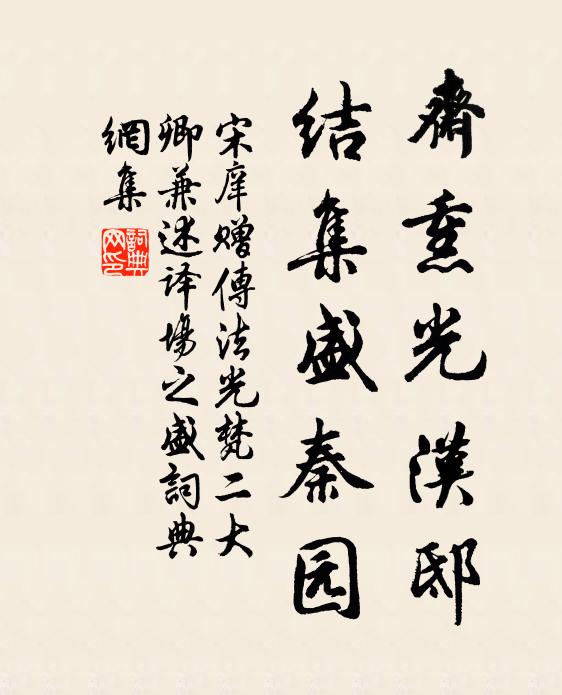 齋熏光漢邸
结集盛秦园
宋庠赠傳法光梵二大
卿兼述译場之盛詞典
網集
詞典网印